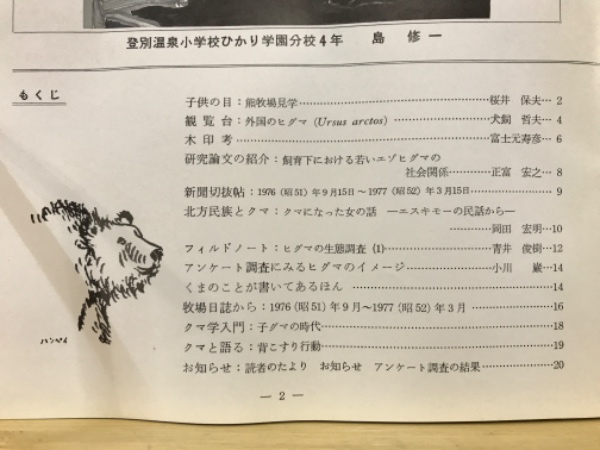 登別温泉小学校ひかり学園分校4年 島 修一
もくじ
子供の目：熊牧場見学…………………………………桜井 保夫… 2
観覧台：外国のヒグマ (Ursus arctos) ………………犬飼 哲夫… 4
木印考……………………………………………………富士元寿彦… 6
研究論文の紹介：飼育下における若いエゾヒグマの
社会関係…………正富 宏之… 8
新聞切抜帖：1976 (昭51) 年9月15日～1977 (昭52) 年3月15日………………… 9
北方民族とクマ：クマになった女の話 ―エスキモーの民話から―
…………岡田 宏明…10
フィルドノート：ヒグマの生態調査 (1)…………………青井 俊樹…12
アンケート調査にみるヒグマのイメージ………………小川 巌…14
くまのことが書いてあるほん ……………………………………14
牧場日誌から：1976 (昭51) 年9月～1977 (昭52) 年3月 …………………16
クマ学入門：子グマの時代……………………………………18
クマと語る：背こすり行動……………………………………19
お知らせ：読者のたより お知らせ アンケート調査の結果…………………20
ハンペイ
― 2 ―